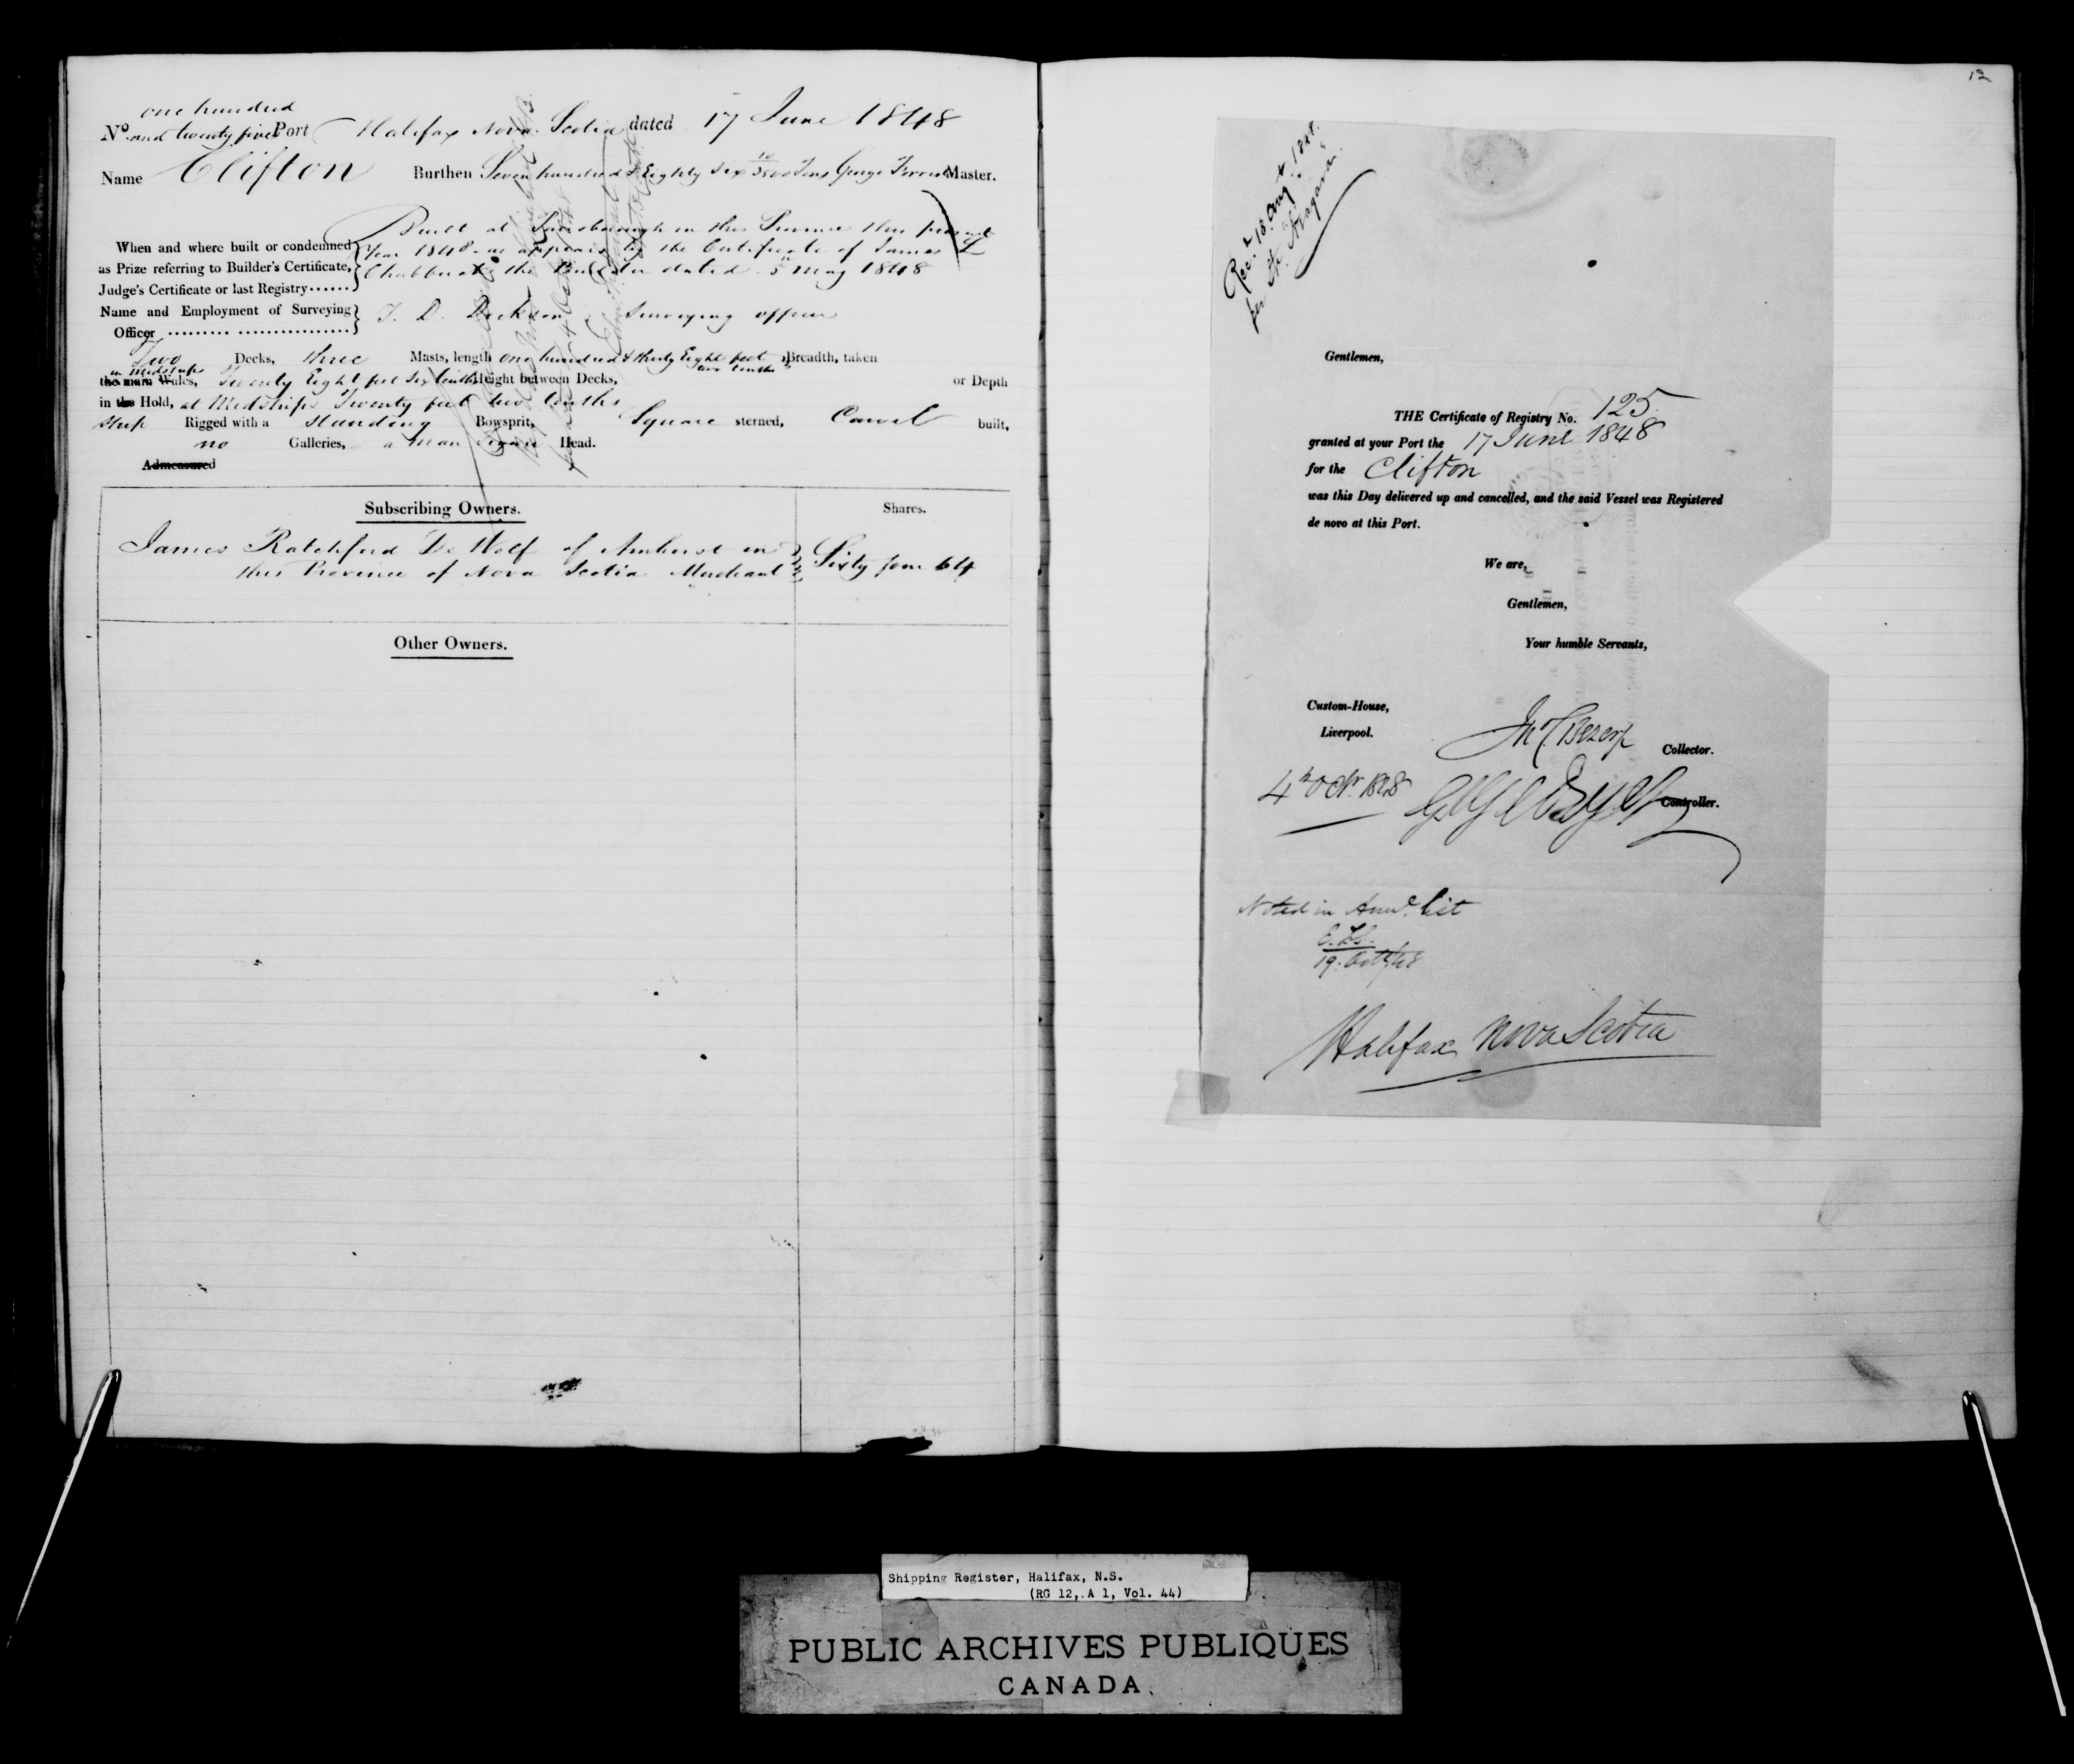 one hundred
No. and twenty five Port Halifax Nova Scotia dated 17 June 1848
Name Clifton Burthen Seven hundred & Eighty Six Tons George Master.
Built at Parrsborough in this Province this present
When and where built or condemned year 1848 as appears by the Certificate of James
as Prize referring to Builder's Certificate, the Builder dated 5 May 1848
Judge's Certificate or last Registry......
Name and Employment of Surveying T. D. Dickson Surveying officer
Officer ......... ................
Two Decks, three Masts, length one hundred & thirty Eight feet two tenths Breadth, taken
in Midships
the main Wales, Twenty Eight feet Six tenths Height between Decks, or Depth
in the Hold, at Midships Twenty feet two tenths
Ship Rigged with a Standing Bowsprit, Square sterned, Carvel built,
no Galleries, a Man figure Head.
Admeasured
Subscribing Owners. Shares.
James Ratchford De Wolf of Amherst in
this Province of Nova Scotia Merchant Sixty four 64
Other Owners.
12
Recd. 18. 1848.
per Niagara.
Gentlemen,
THE Certificate of Registry No. 125
granted at your Port the 17 June 1848
for the Clifton
was this Day delivered up and cancelled, and the said Vessel was Registered
de novo at this Port.
We are,
Gentlemen,
Your humble Servants,
Custom-House,
Liverpool.
Collector.
4th Octr. 1848
Controller.
Noted in list
19. Octr/48
Halifax Nova Scotia
Shipping Register, Halifax, N.S.
(RG 12, A 1, Vol. 44)
PUBLIC ARCHIVES PUBLIQUES
CANADA